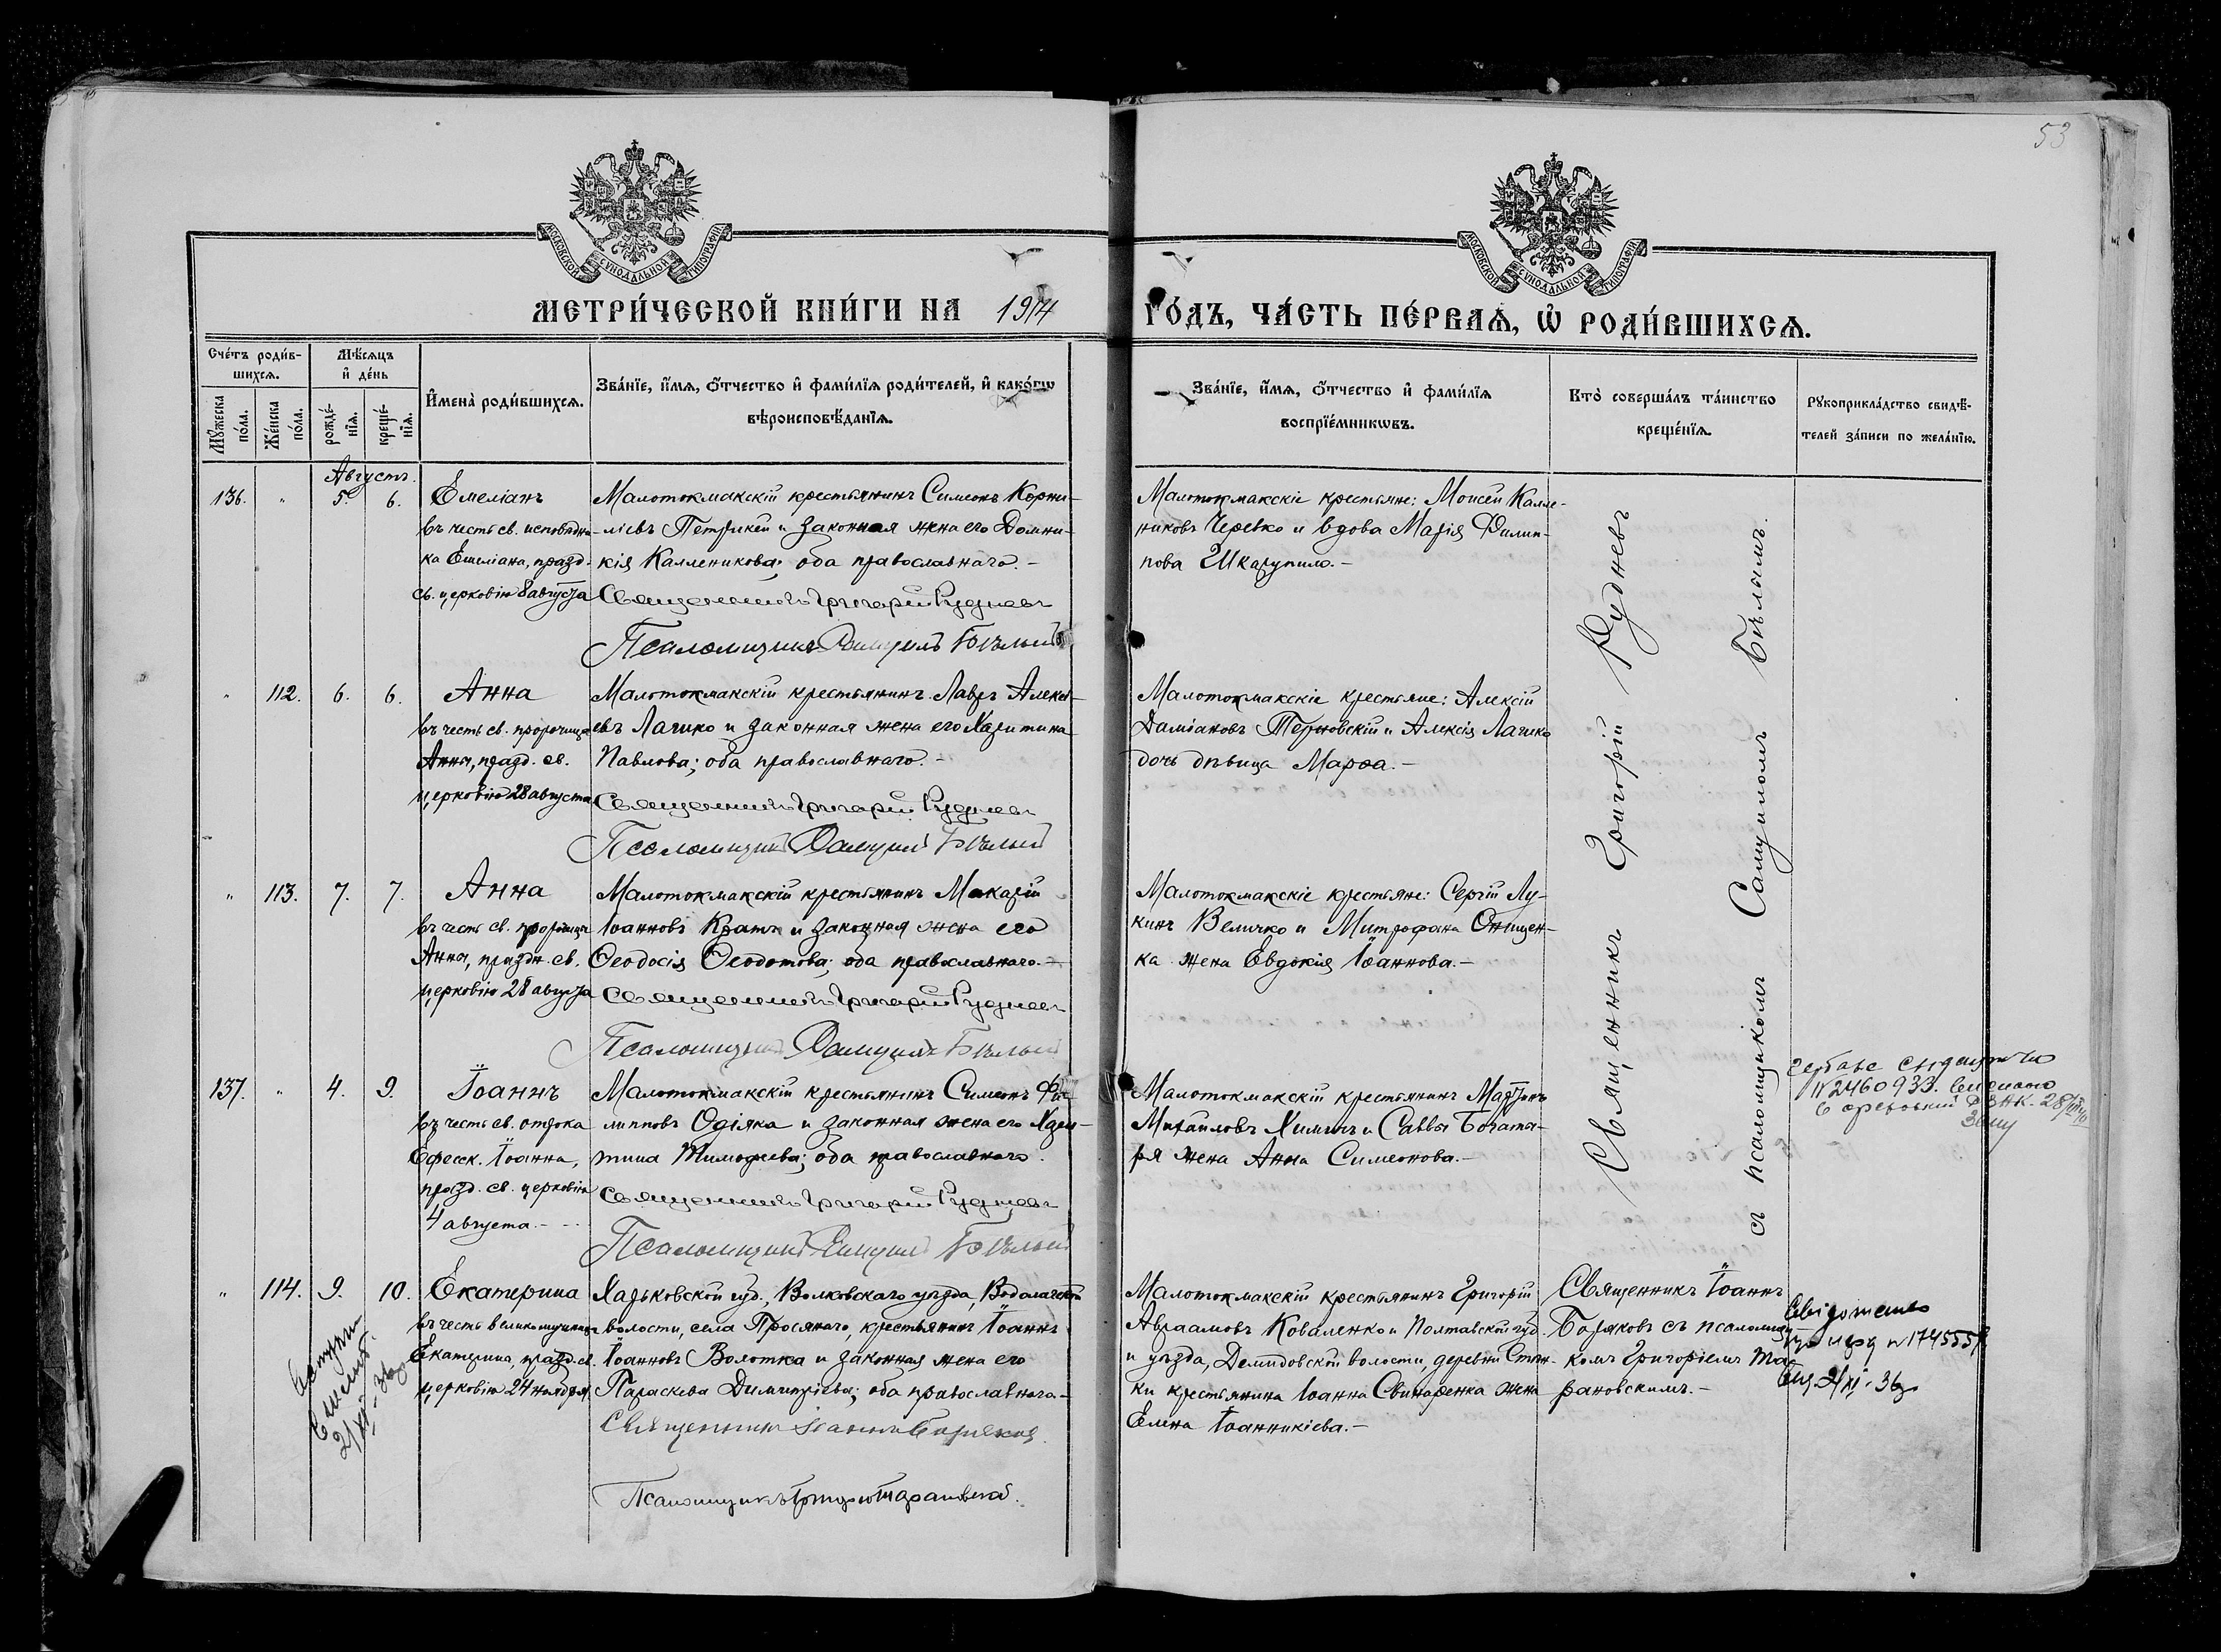 53
МОСКОВСКОЙ СѴНОДАЛЬНОЙ ТИПОГРАФІИ
МОСКОВСКОЙ СѴНОДАЛЬНОЙ ТИПОГРАФІИ
МЕТРИ́ЧЕСКОЙ КНИ́ГИ НА 1914 ГО́ДЪ, ЧА́СТЬ ПЕ́РВАѦ, Ѡ҆ РОДИ́ВШИХСѦ.
Сче́тъ роди́в-
шихсѧ.
Мꙋ́жеска
по́ла.
Же́нска
по́ла.
Мѣ́сѧцъ
и҆ де́нь
рожде́-
нїѧ.
креще́-
нїѧ.
И҆мена̀ роди́вшихсѧ.
Зва́нїе, и҆́мѧ, ѻ҆́тчество и҆ фами́лїѧ роди́телей, и҆ како́гѡ
вѣроисповѣ́данїѧ.
Зва́нїе, и҆́мѧ, ѻ҆́тчество и҆ фами́лїѧ
воспрїе́мникѡвъ.
Кто̀ соверша́лъ та́инство
креще́нїѧ.
Рꙋкоприкла́дство свидѣ́-
телей за́писи по жела́нїю.
Августъ.
136. " 5. 6. Емеліанъ
въ честь св. исповѣдни-
ка Емеліана, празд.
св. церковію 8 августа
Малотокмакскій крестьянинъ Симеонъ Корни-
ліевъ Петрикей и законная жена его Домни-
кія Каллениковa; оба православнаго.-
Священникъ Григорій Рудневъ
Псаломщикъ Самуилъ Бѣлый
Малотокмакскіе крестьяне: Моисей Калле-
никовъ Черевко и вдова Марія Филип-
пова Шкарупило.-
" 112. 6. 6. Анна
въ честь св. пророчицы
Анны, празд. св.
церковію 28 августа
Малотокмакскій крестьянинъ Лавръ Алексі-
евъ Лагико и законная жена его Харитина
Павлова; оба православнаго.-
Священникъ Григорій Рудневъ
Псаломщикъ Самуилъ Бѣлый
Малотокмакскіе крестьяне: Алексій
Даміановъ Терновскій и Алексія Лагико
дочь дѣвица Марѳа.-
" 113. 7. 7. Анна
въ честь св. пророчицы
Анны, праздн. св.
церковію 28 августа
Малотокмакскій крестьянинъ Макарій
Іоанновъ Кратъ и законная жена его
Ѳеодосія Ѳеодотова; оба православнаго.-
Священникъ Григорій Рудневъ
Псаломщикъ Самуилъ Бѣлый
Малотокмакскіе крестьяне: Сергій Лу-
кинъ Величко и Митрофана Онищен-
ка жена Евдокія Іоаннова.-
137. " 4. 9. Іоаннъ
въ честь св. отрока
Ефесск. Іоанна,
празд. св. церковію
4 августа.-
Малотокмакскій крестьянинъ Симеонъ Фи-
липповъ Одіяка и законная жена его Хари-
тина Тимофеева; оба православнаго.
Священникъ Григорій Рудневъ
Псаломщикъ Самуилъ Бѣлый
Малотокмакскій крестьянинъ
Михаиловъ Химичъ и Саввы Богаты-
ря жена Анна Симеонова.-
Священникъ Григорій Рудневъ
съ псаломщикомъ Самуиломъ Бѣлымъ.
№ 2460933.
" 114. 9. 10. Екатерина
въ честь великомученицы
Екатерины, празд. св.
церковію 24 ноября.
Харьковской губ., Волковскаго уѣзда, Водолагской
волости, села Просянаго, крестьянинъ Іоаннъ
Іоанновъ Волотка и законная жена его
Параскева Димитріева; оба православнаго.-
Священникъ Іоаннъ Боряковъ
Псаломщикъ Григорій Тарановскій.
Малотокмакскій крестьянинъ Григорій
Авраамовъ Коваленко и Полтавской губ.
и уѣзда, Демидовской волости, деревни
крестьянина Іоанна Свинаренка жена
Елена Іоанникіева.-
Священникъ Іоаннъ
Боряковъ съ псаломщи-
комъ Григоріемъ Та-
рановскимъ.-
2/XI-36